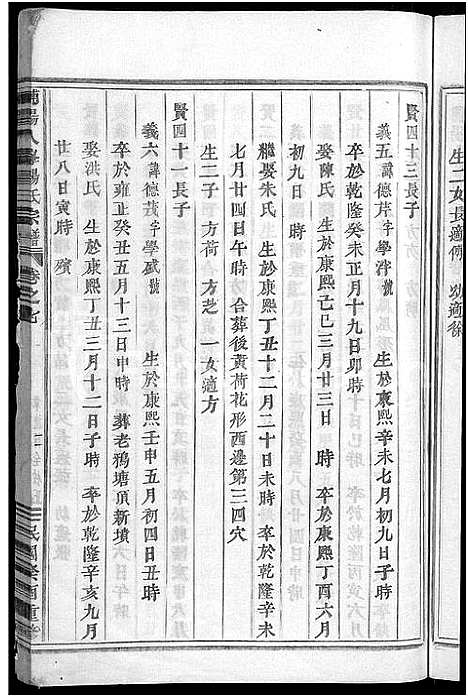 生二女長適傅　幼適徐
賢四十三長子
義五諱德芹字學泮號　生於康熙辛未七月初九日子時
卒於乾隆癸未正月十九日卯時
娶陳氏　生於康熙己巳三月廿三日　時　卒於乾隆丁酉六月
初九日　時
繼娶朱氏　生於康熙丁丑十二月二十日未時卒於乾隆辛未
七月廿四日午時合葬後黃荷花形西邊第三四穴
生二子　方荷　方芝　一女適方
賢四十一長子
義六諱德芸字學盛號　生於康熙壬申五月初四日丑時
卒於雍正癸丑五月十三日申時　葬老鴉塘頂新墳
娶洪氏　生於康熙丁丑三月十二日子時　卒於乾隆辛亥九月
廿八日寅時　殯
浦陽人峯楊氏宗譜　卷之七　民國癸酉重修